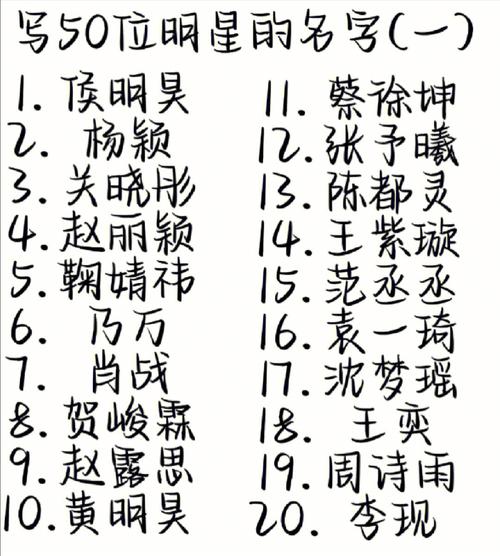 写50位明星的名字(一)
1. 侯明昊
2. 杨颖
3. 关晓彤
4. 赵丽颖
5. 鞠婧祎
6. 乃万
7. 肖战
8. 贺峻霖
9. 赵露思
10. 黄明昊
11. 蔡徐坤
12. 张予曦
13. 陈都灵
14. 王紫璇
15. 范丞丞
16. 袁一琦
17. 沈梦瑶
18. 王奕
19. 周诗雨
20. 李现